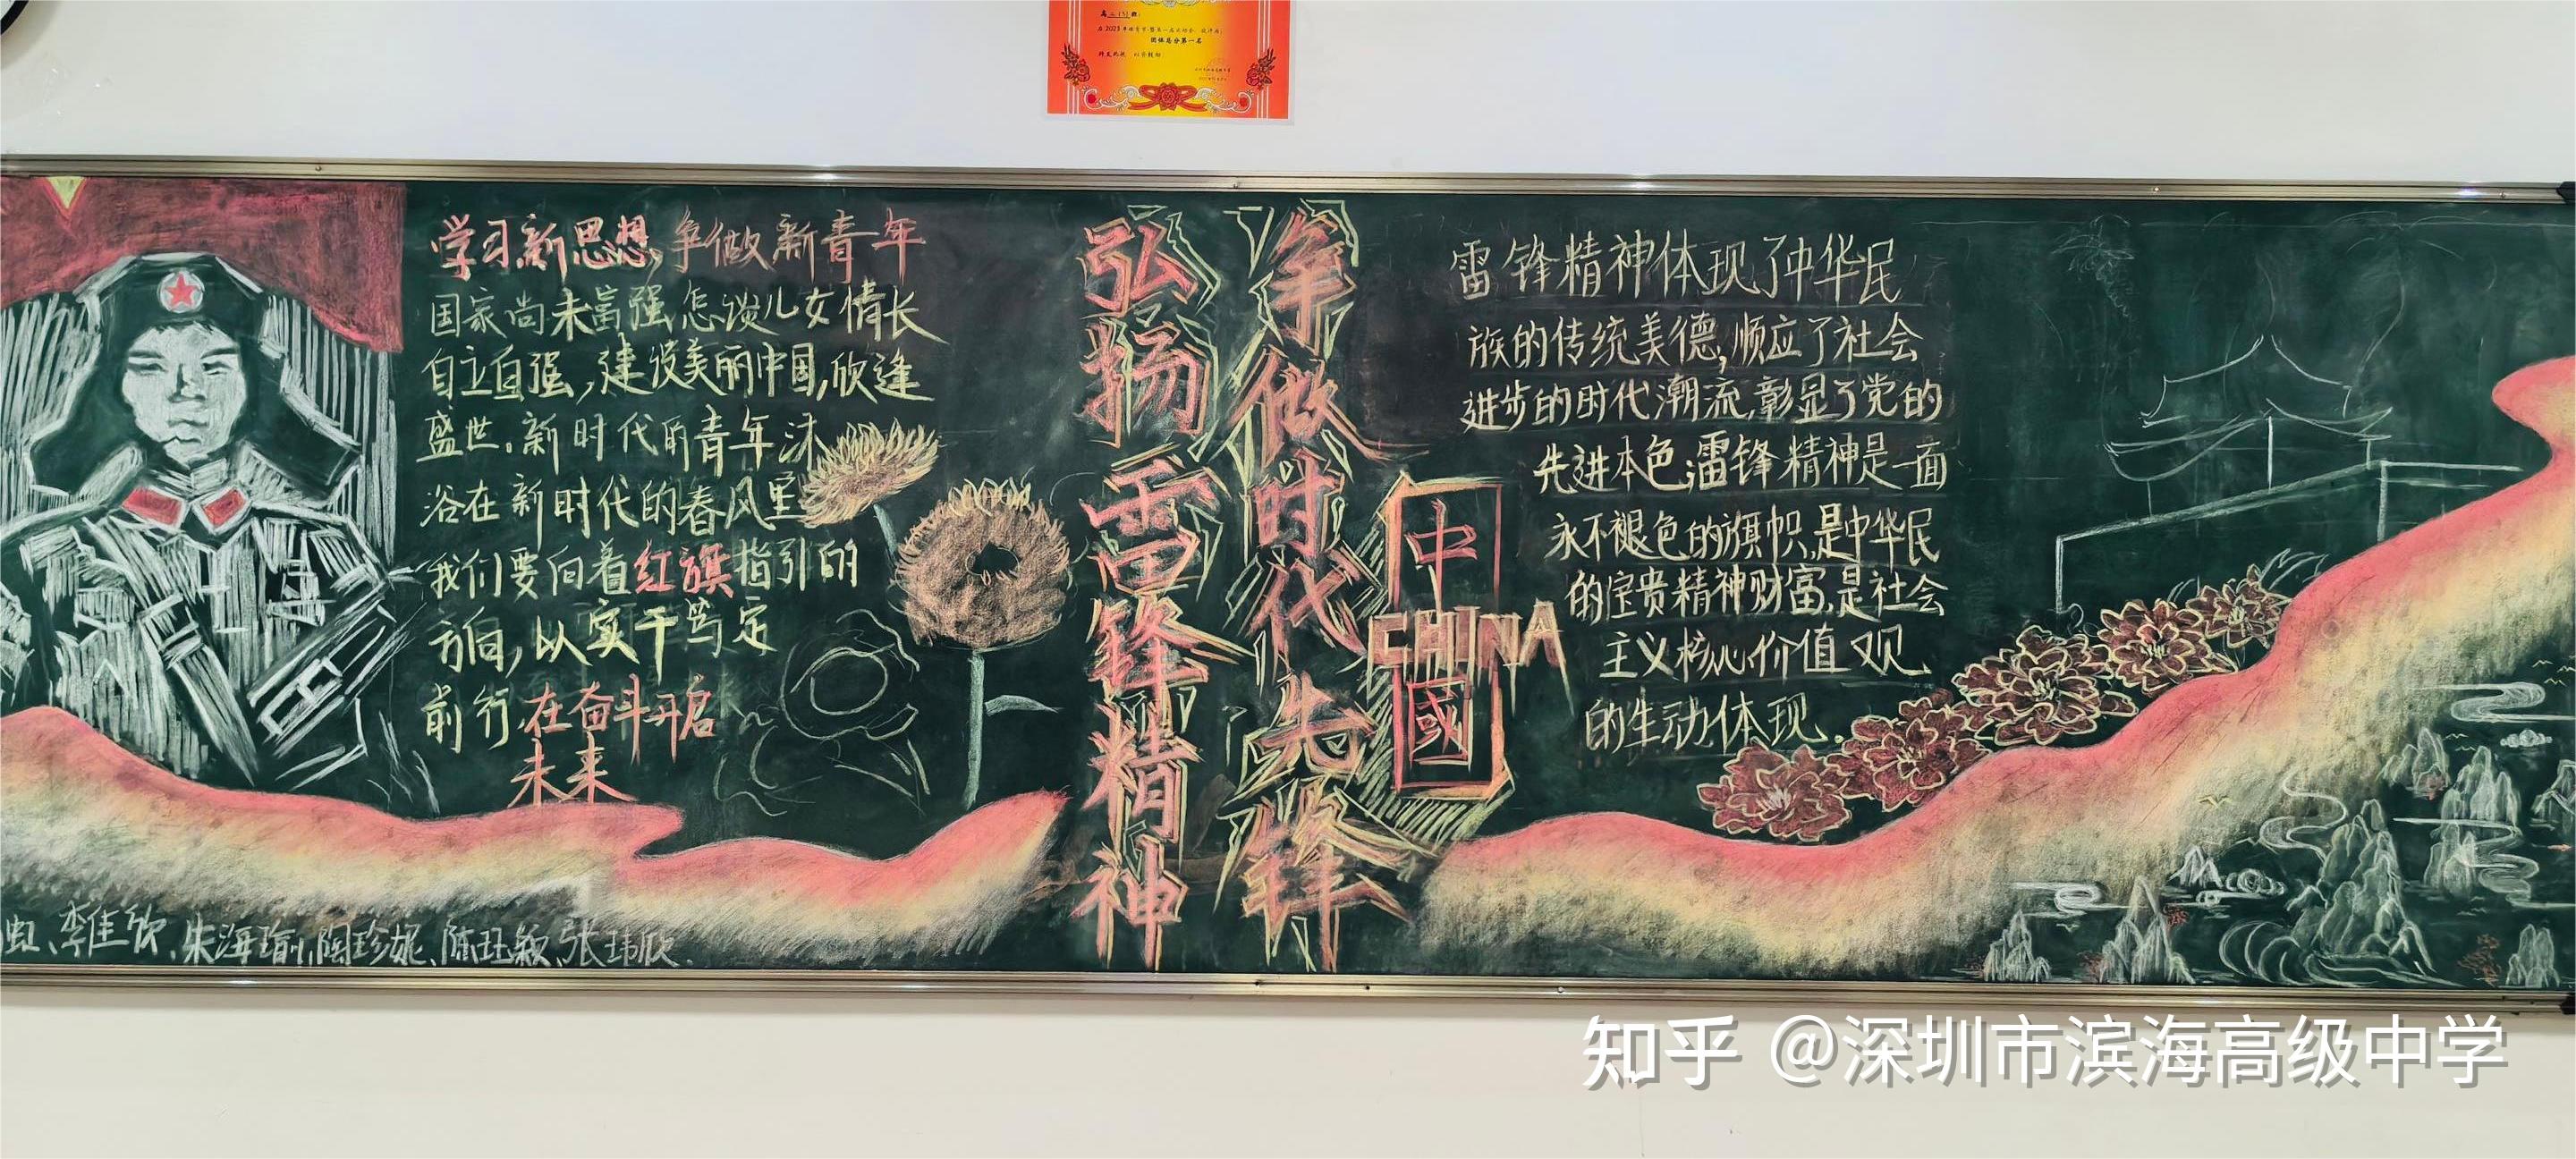 团体总分第一名
学习新思想,争做新青年
国家尚未富强,怎谈儿女情长
自立自强,建设美丽中国,欣逢
盛世.新时代的青年沐
浴在新时代的春风里
我们要向着红旗指引的
方向,以实干笃定
前行,在奋斗开启
未来
李佳欣、朱海瑜、陶珍妮、陈珏颖、张玮欣.
弘扬雷锋精神
争做时代先锋
中
CHINA
國
雷锋精神体现了中华民
族的传统美德,顺应了社会
进步的时代潮流,彰显了党的
先进本色;雷锋精神是一面
永不褪色的旗帜,是中华民
的宝贵精神财富,是社会
主义核心价值观
的生动体现.
知乎 @深圳市滨海高级中学